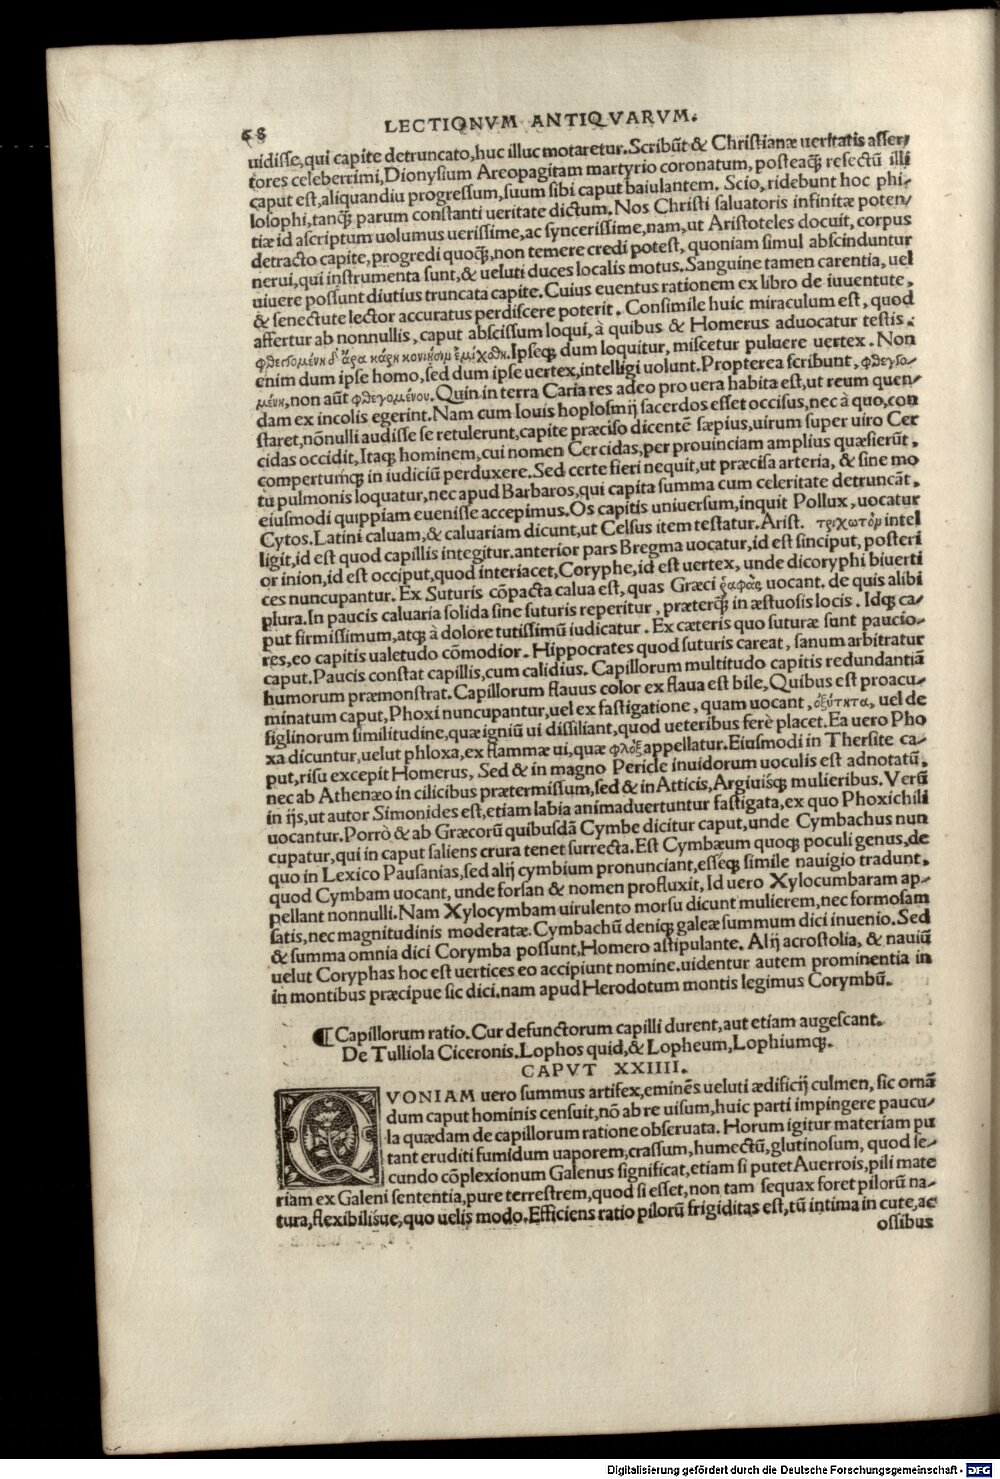 68 LECTIONVM ANTIQVARVM.
uidisse,qui capite detruncato,huc illuc motaretur.Scribūt & Christianæ ueritatis asser/
tores celeberrimi,Dionysium Areopagitam martyrio coronatum, posteaq̃ resectū illi
caput est,aliquandiu progressum,suum sibi caput baiulantem. Scio, ridebunt hoc phi/
losophi,tanq̃ parum constanti ueritate dictum. Nos Christi saluatoris infinitæ poten/
tiæ id ascriptum uolumus uerissime,ac syncerissime,nam,ut Aristoteles docuit, corpus
detracto capite,progredi quoq̃,non temere credi potest, quoniam simul abscinduntur
nerui,qui instrumenta sunt,& ueluti duces localis motus.Sanguine tamen carentia, uel
uiuere possunt diutius truncata capite.Cuius euentus rationem ex libro de iuuentute,
& senectute lector accuratus perdiscere poterit. Consimile huic miraculum est, quod
affertur ab nonnullis, caput abscissum loqui, à quibus & Homerus aduocatur testis:
φθεγγομένη δ' ἄρα κάρη κονίῃσιν ἐμίχθη.Ipseq; dum loquitur, miscetur puluere uertex. Non
enim dum ipse homo,sed dum ipse uertex,intelligi uolunt.Propterea scribunt, φθεγγο/
μένη,non aūt φθεγομένου.Quin in terra Caria res adeo pro uera habita est,ut reum quen/
dam ex incolis egerint. Nam cum Iouis hoplosmij sacerdos esset occisus,nec à quo,con
staret,nōnulli audisse se retulerunt,capite præciso dicentē sæpius,uirum super uiro Cer
cidas occidit,Itaq; hominem,cui nomen Cercidas,per prouinciam amplius quæsierūt,
compertumq; in iudiciū perduxere. Sed certe fieri nequit,ut præcisa arteria, & sine mo
tu pulmonis loquatur,nec apud Barbaros,qui capita summa cum celeritate detruncāt,
eiusmodi quippiam euenisse accepimus.Os capitis uniuersum,inquit Pollux, uocatur
Cytos.Latini caluam,& caluariam dicunt,ut Celsus item testatur. Arist. τριχωτὸν intel
ligit,id est quod capillis integitur.anterior pars Bregma uocatur,id est sinciput, posteri
or inion,id est occiput,quod interiacet,Coryphe,id est uertex, unde dicoryphi biuerti
ces nuncupantur. Ex Suturis cōpacta calua est, quas Græci ῥαφὰς uocant. de quis alibi
plura.In paucis caluaria solida sine suturis reperitur, præterq̃ in æstuosis locis. Idq; ca/
put firmissimum,atq; à dolore tutissimū iudicatur. Ex cæteris quo suturæ sunt paucio/
res,eo capitis ualetudo cōmodior. Hippocrates quod suturis careat, sanum arbitratur
caput.Paucis constat capillis,cum calidius. Capillorum multitudo capitis redundantiā
humorum præmonstrat.Capillorum flauus color ex flaua est bile,Quibus est proacu/
minatum caput,Phoxi nuncupantur,uel ex fastigatione, quam uocant, ὀξύτητα, uel de
figlinorum similitudine,quæ igniū ui dissiliant,quod ueteribus ferè placet. Ea uero Pho
xa dicuntur,uelut phloxa,ex flammæ ui,quæ φλὸξ appellatur.Eiusmodi in Thersite ca/
put,risu excepit Homerus, Sed & in magno Pericle inuidorum uoculis est adnotatū,
nec ab Athenæo in cilicibus prætermissum,sed & in Atticis,Argiuisq; mulieribus. Verū
in ijs,ut autor Simonides est,etiam labia animaduertuntur fastigata,ex quo Phoxichili
uocantur.Porrò & ab Græcorū quibusdā Cymbe dicitur caput,unde Cymbachus nun
cupatur,qui in caput saliens crura tenet surrecta.Est Cymbæum quoq; poculi genus,de
quo in Lexico Pausanias,sed alij cymbium pronunciant,esseq; simile nauigio tradunt,
quod Cymbam uocant, unde forsan & nomen profluxit, Id uero Xylocumbaram ap/
pellant nonnulli.Nam Xylocymbam uirulento morsu dicunt mulierem,nec formosam
satis,nec magnitudinis moderatæ. Cymbachū deniq; galeæ summum dici inuenio. Sed
& summa omnia dici Corymba possunt,Homero astipulante. Alij acrostolia, & nauiū
uelut Coryphas hoc est uertices eo accipiunt nomine.uidentur autem prominentia in
in montibus præcipue sic dici.nam apud Herodotum montis legimus Corymbū.
¶Capillorum ratio.Cur defunctorum capilli durent,aut etiam augescant.
De Tulliola Ciceronis.Lophos quid,& Lopheum,Lophiumq;.
CAPVT XXIIII.
QVONIAM uero summus artifex,eminēs ueluti ædificij culmen, sic ornā
dum caput hominis censuit,nō ab re uisum,huic parti impingere paucu/
la quædam de capillorum ratione obseruata. Horum igitur materiam pu
tant eruditi fumidum uaporem,crassum,humectū,glutinosum, quod se/
cundo cōplexionum Galenus significat,etiam si putet Auerrois,pili mate
riam ex Galeni sententia,pure terrestrem,quod si esset,non tam sequax foret pilorū na/
tura,flexibilisue,quo uelis modo.Efficiens ratio pilorū frigiditas est,tū intima in cute,ac
ossibus
Digitalisierung gefördert durch die Deutsche Forschungsgemeinschaft - DFG